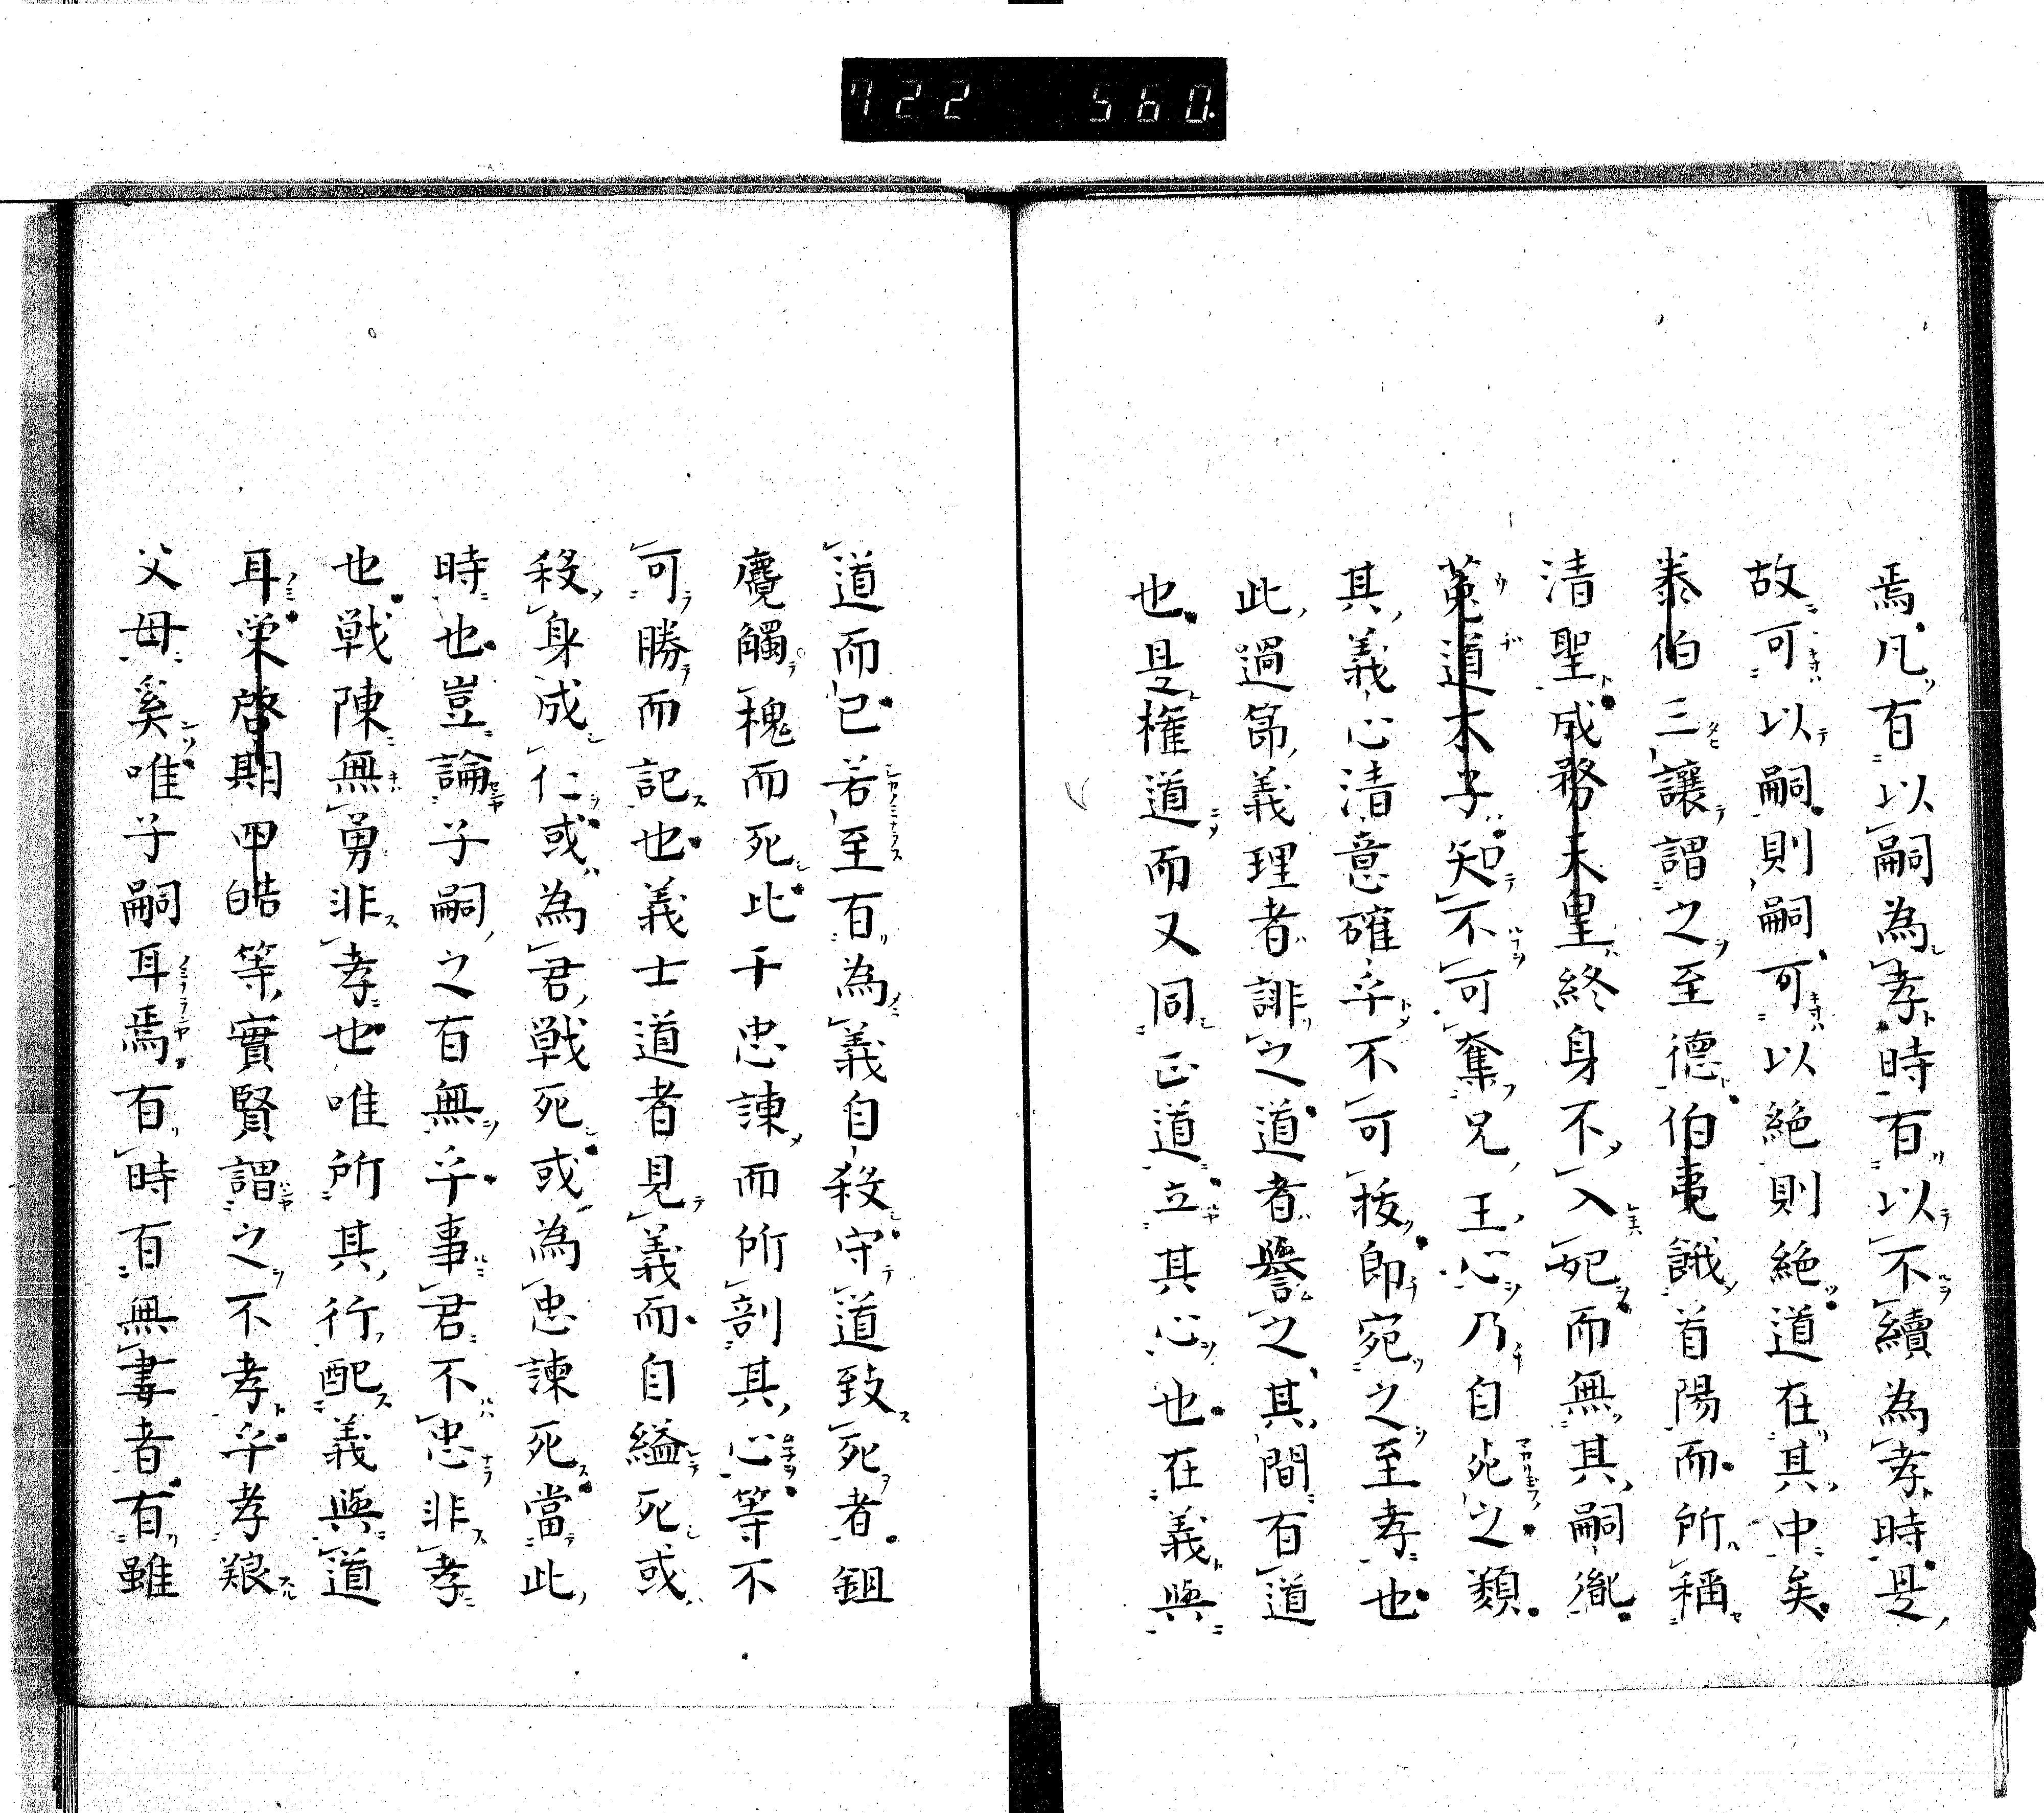 722 560
焉凡有以嗣為孝時有以不續為孝時是
故可以嗣則嗣可以絶則絶道在其中矣
泰伯三讓謂之至德伯夷餓首陽而所稱
清聖成務天皇終身不入妃而無其嗣胤
菟道太子知不可奪兄王心乃自死之類
其義心清意確乎不可拔即宛之至孝也
此過節義理者誹之道者譽之其間有道
也是權道而又同正道立其心也在義與
道而已若至有為義自殺守道致死者鉏
麑觸槐而死比干忠諫而所剖其心等不
可勝而記也義士道者見義而自縊死或
殺身成仁或為君戰死或為忠諫死當此
時也豈論子嗣之有無乎事君不忠非孝
也戰陳無勇非孝也唯所其行配義與道
耳栄啓期四皓等實賢謂之不孝乎孝艱
父母奚唯子嗣耳焉有時有無妻者有雖